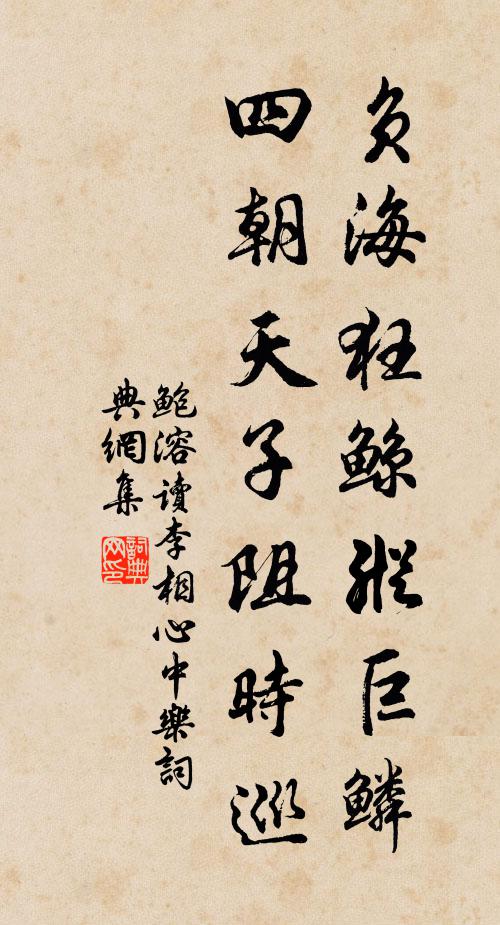 負海狂鯨縱巨鱗
四朝天子阻時巡
鮑溶讀李相心中樂詞
典網集
詞典網印